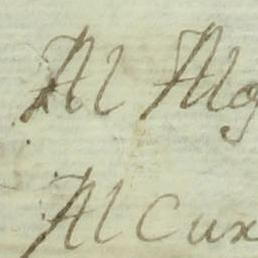 Al Alg
Al Cux